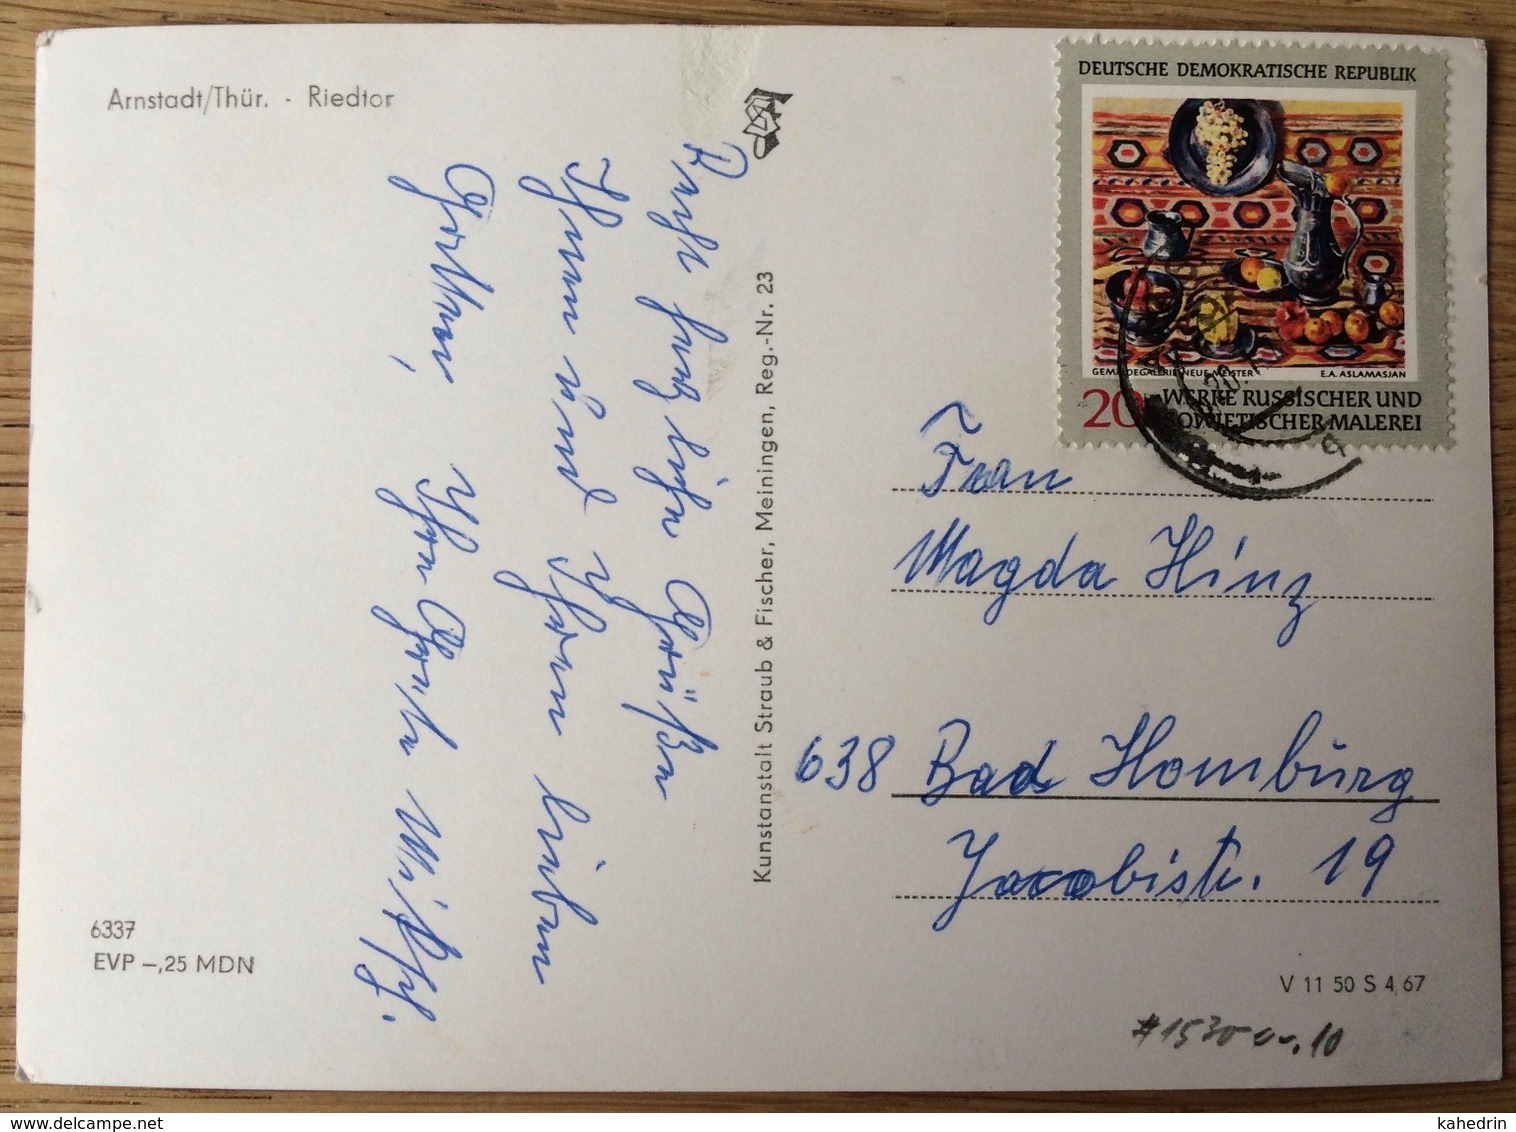 Arnstadt/Thür. - Riedtor
Recht herzliche Grüßen
Ihnen und Ihrem lieben
Ihre
6337
EVP –,25 MDN
Kunstanstalt Straub & Fischer, Meiningen, Reg.-Nr. 23
DEUTSCHE DEMOKRATISCHE REPUBLIK
GEMÄLDEGALERIE NEUE MEISTER E.A. ASLAMASJAN
20 WERKE RUSSISCHER UND
SOWJETISCHER MALEREI
Frau
Magda Hinz
638 Bad Homburg
Jacobistr. 19
V 11 50 S 4 67
#1530
kahedrin
delcampe.net